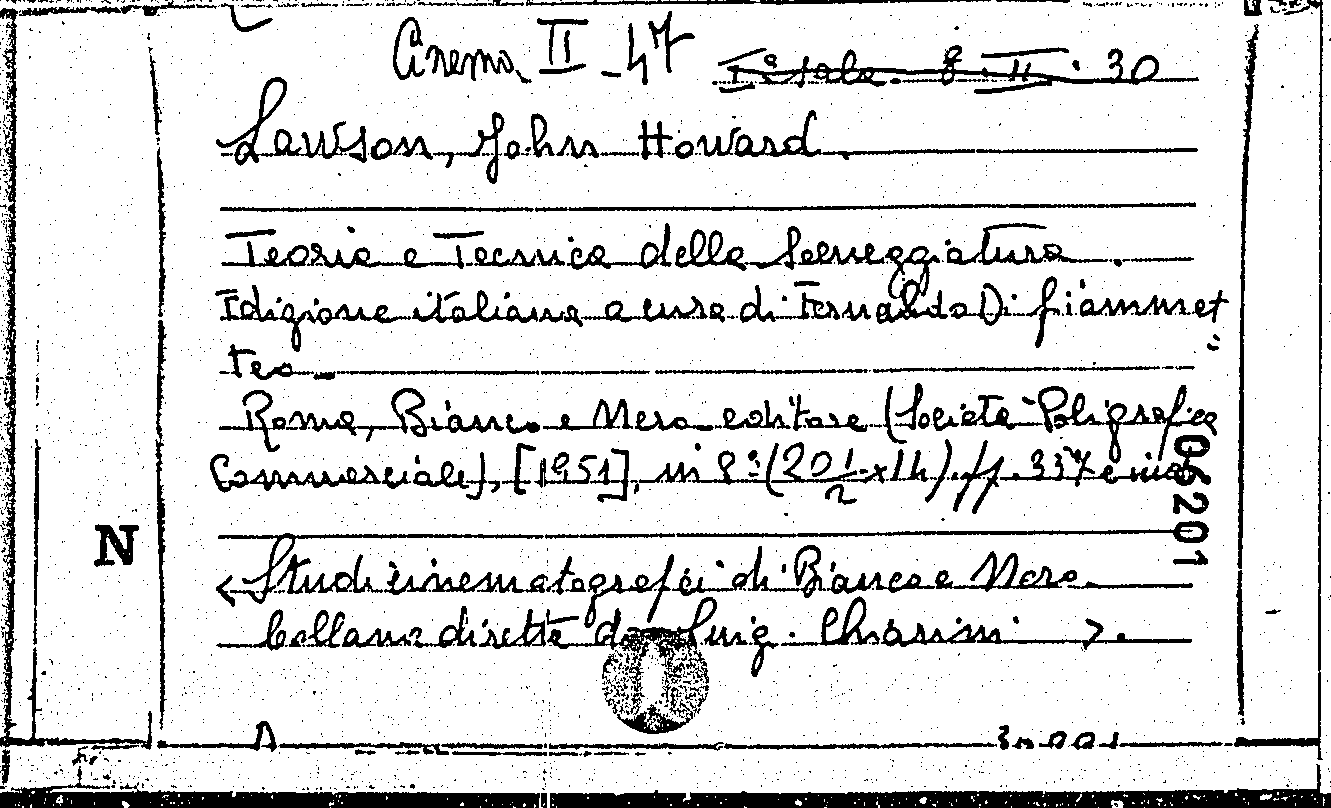 Cinema II - 47 Iª sala. 8. II. 30
Lawson, John Howard.
Teoria e Tecnica della Sceneggiatura.
Edizione italiana a cura di Fernaldo Di Giammat
teo -
Roma, Bianco e Nero editore (Società Poligrafica
Commerciale), [1951], in 8º (20 1/2 x 14). pp. 337 e
062201
N
<Studi cinematografici di Bianco e Nero
Collana diretta da Luigi Chiarini>.